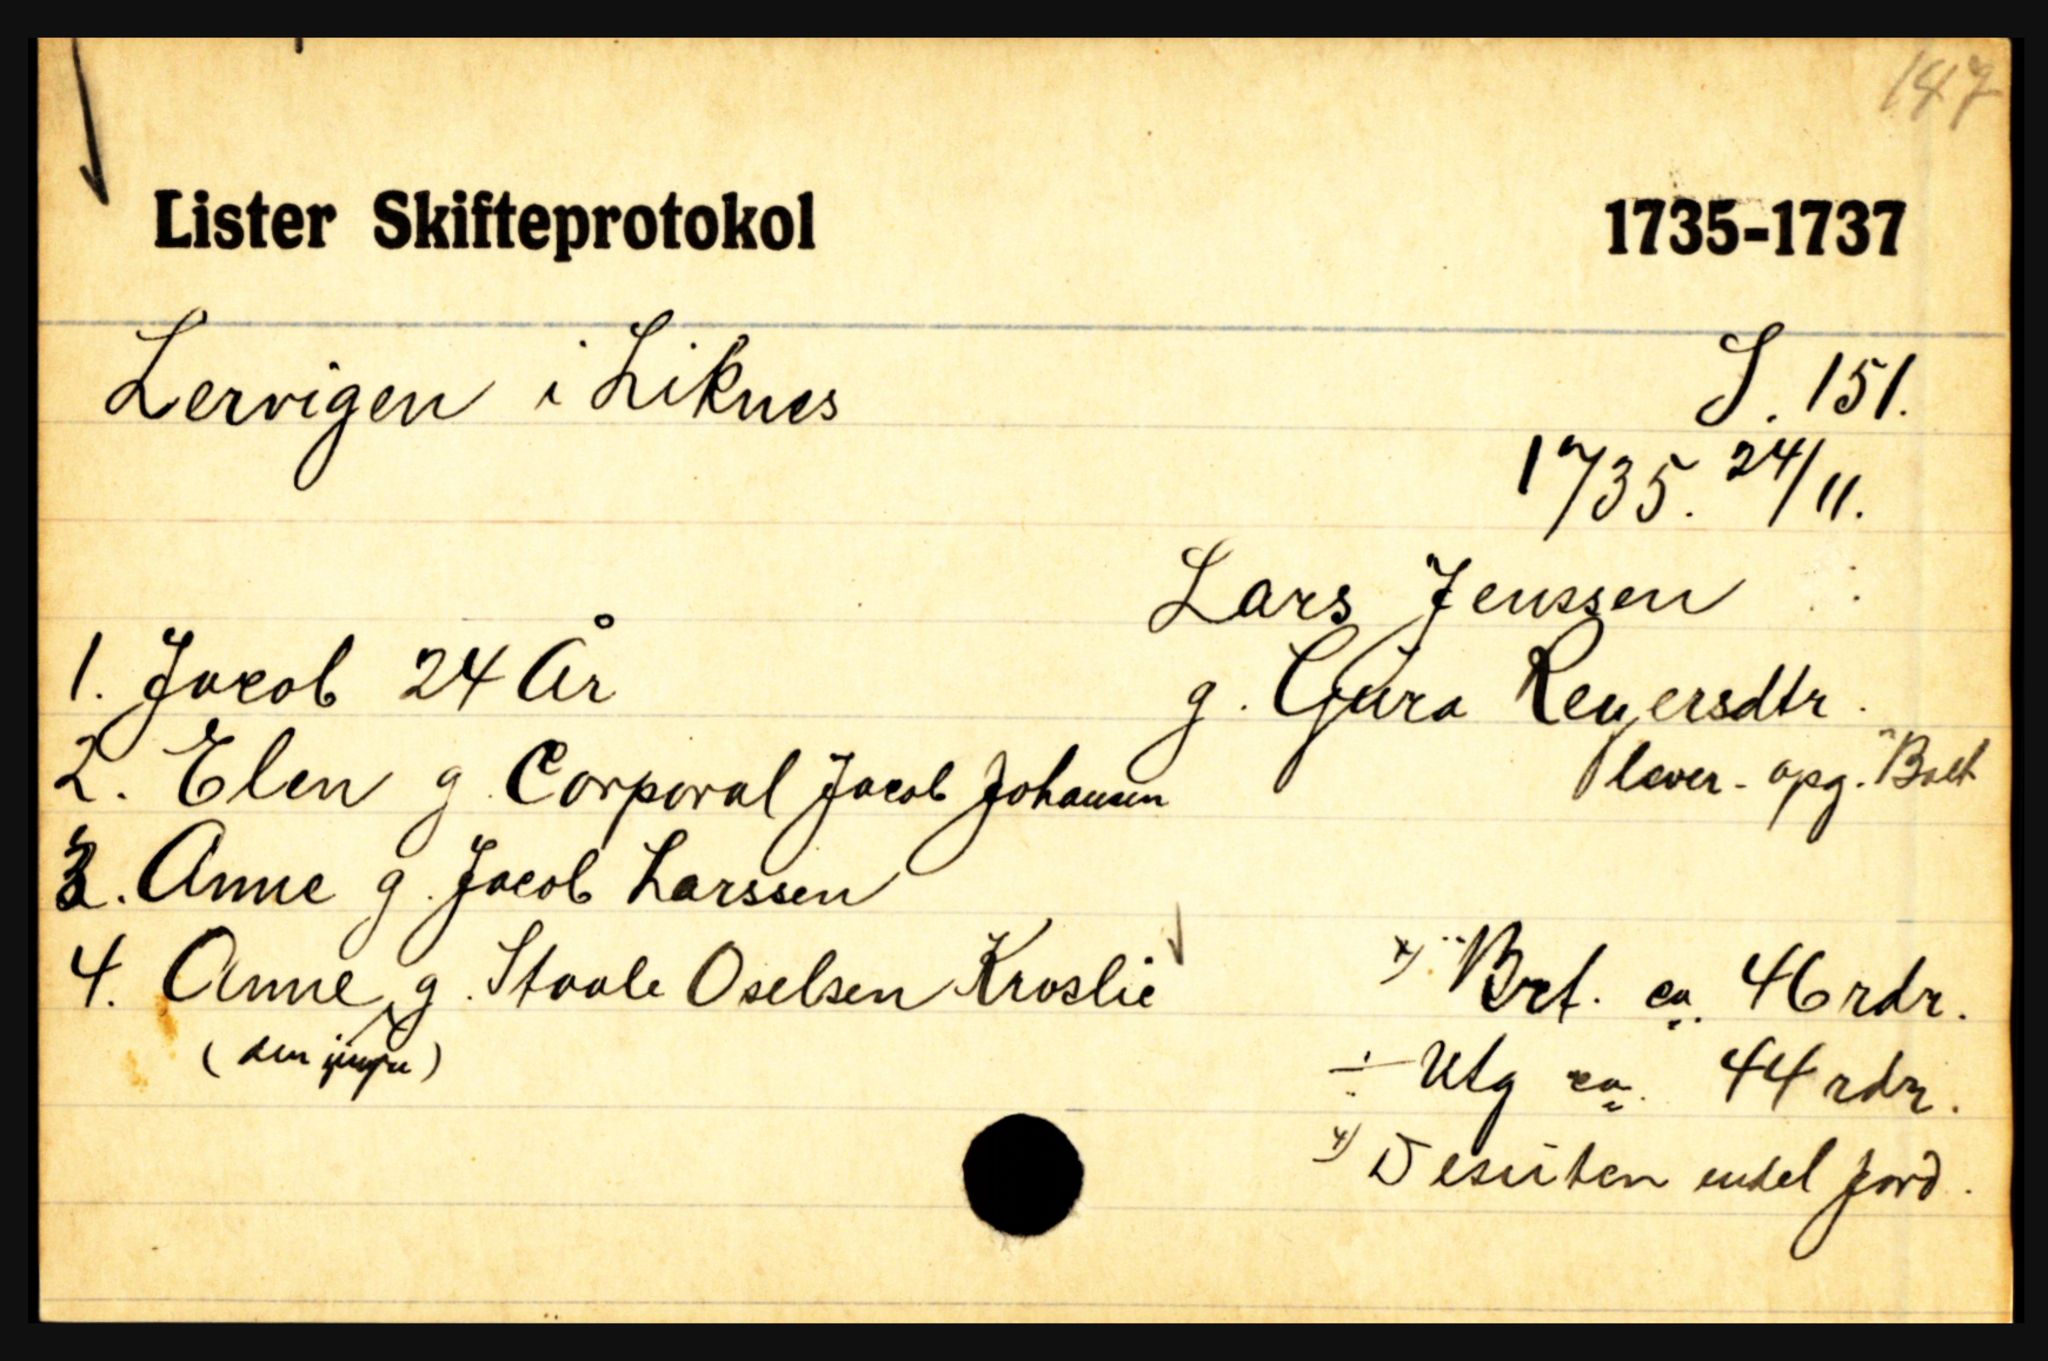 147
Lister Skifteprotokol 1735-1737
Lervigen i Liknes S. 151.
1735. 24/11.
Lars Jenssen
g. Gjura Reyersdtr.
lever - opg. Boet
1. Jacob 24 År
2. Elen g. Corporal Jacob Johansen
3. Anne g. Jacob Larssen
4. Anne g. Staale Oselsen Kroslie
(den yngre)
x) Brt. ca. 46 rdr.
÷ Utg ca. 44 rdr.
x) Desuten endel jord.